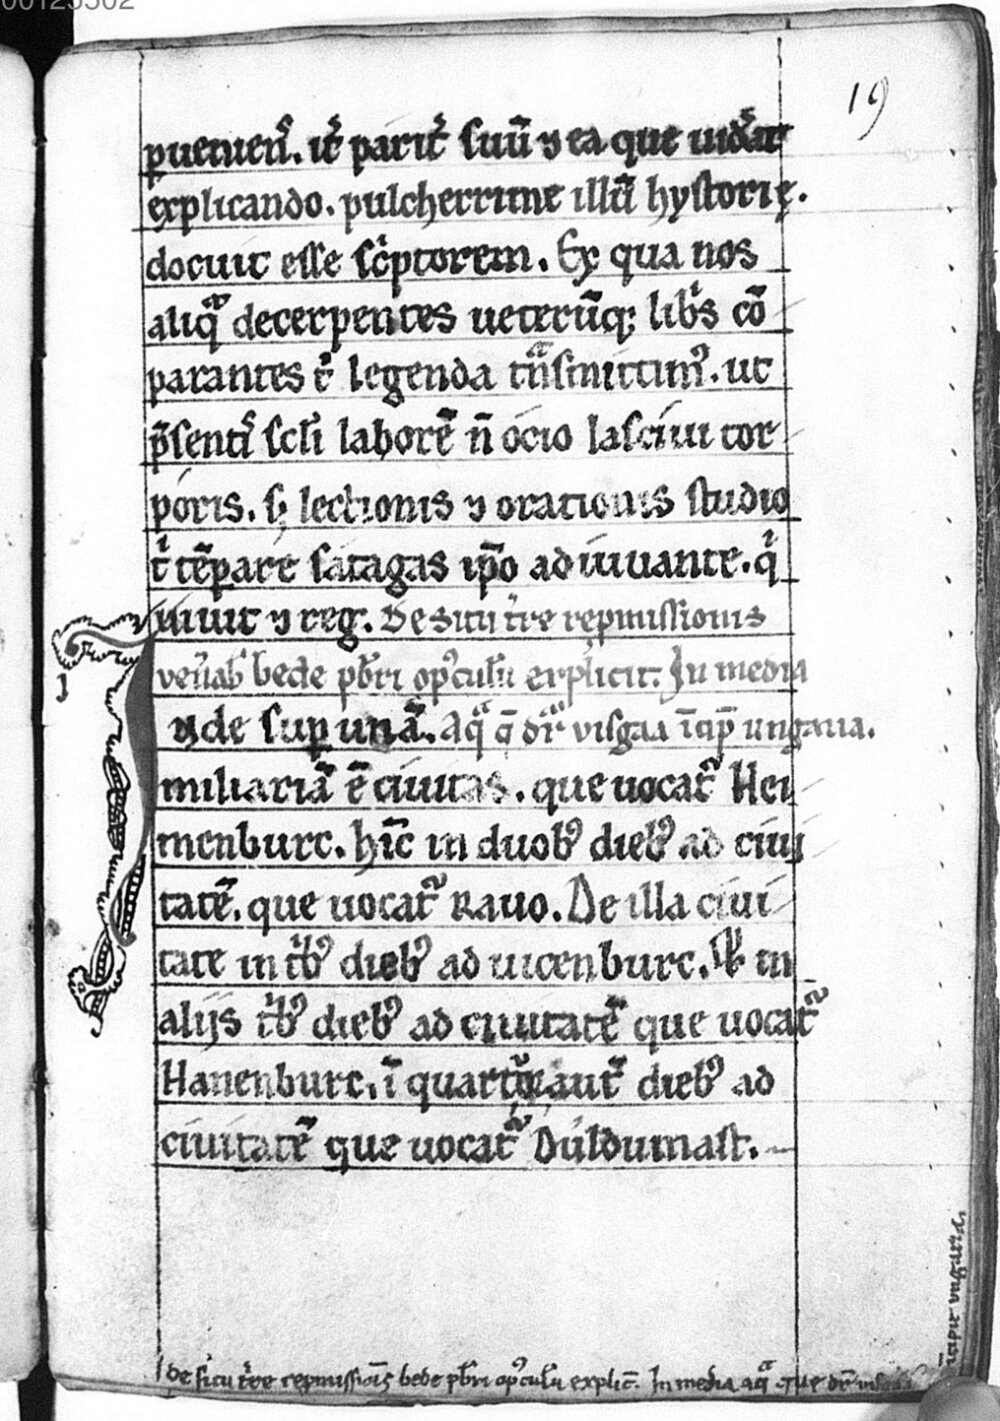 00125302
19
puenień. it̄ parit̄ suū ⁊ ea que uidat̄
explicando. pulcherrime illū hystorię.
docuit esse sc̄ptorem. Ex qua nos
aliq̄ decerpentes ueterūq; lib̾s cō
parantes t̾ legenda tn̄smittim᾽. ut
p̄sentis̾ scl̾i laborē n̄ ocio lasciui cor
poris. s; lectionis ⁊ orationis studio
t̾ tēpare satagas ip̄o adiuuante. q̾
uiuit ⁊ reg̾. De situ t̾re repmissionis
ven̾ab̾ bede pb̾ri op᾽culū explicit: In media
⁊de sup unā. Aq̄ q̄ dr̄ visgaa īcip̄ ungaria.
miliariā ē ciuitas. que uocat᾽ Hei
menburc. hīc in duob᾽ dieb᾽ ad ciui
tatē. que uocat᾽ Rauo. De illa ciui
tate in t̾b᾽ dieb᾽ ad uicenburc. in
alijs t̾b᾽ dieb᾽ ad ciuitatē que uocat᾽
Hanenburc. ī quartū aut̄ dieb᾽ ad
ciuitatē que uocat᾽ Duldumast.
de situ t̾re repmissiōis bede pb̾ri op᾽culū explic̄. In media aq̄ que dr̄ visgaa
īcipit ungaria.